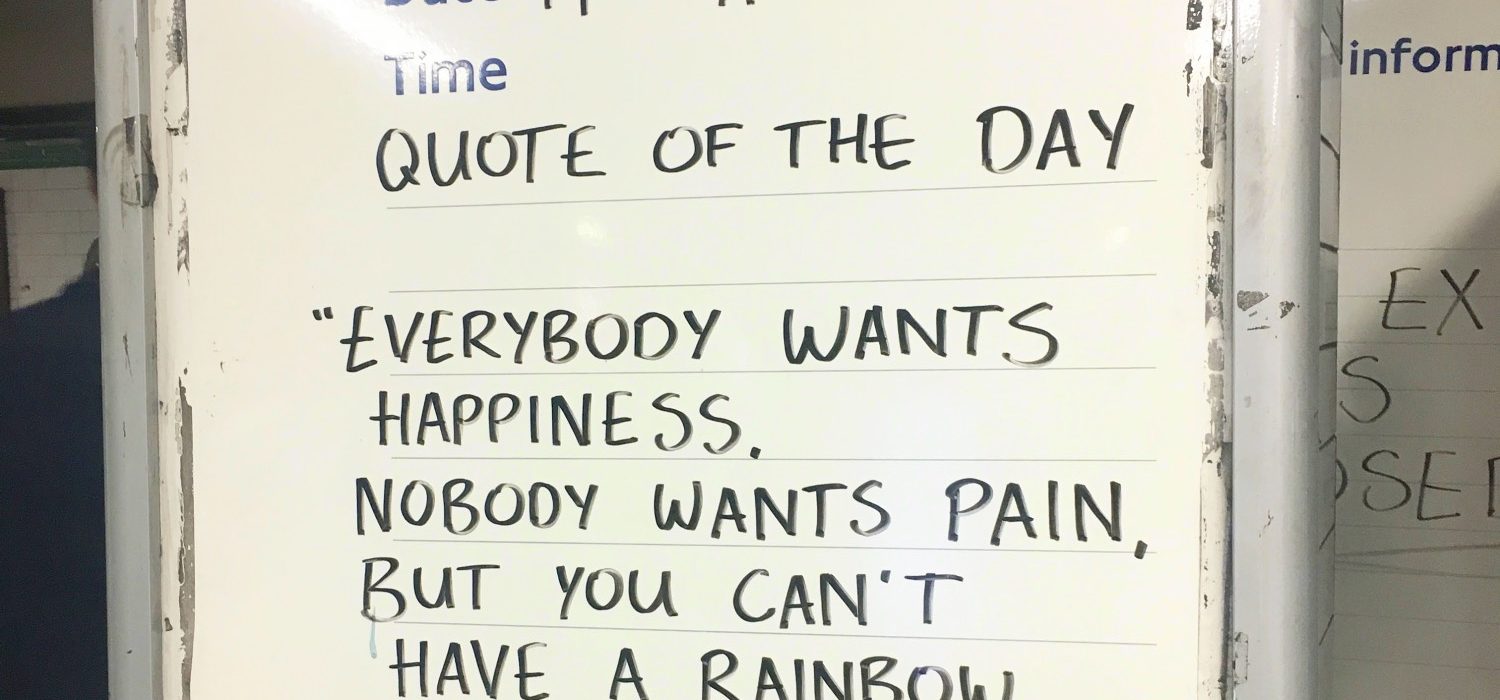 Time
QUOTE OF THE DAY
"EVERYBODY WANTS
HAPPINESS.
NOBODY WANTS PAIN,
BUT YOU CAN'T
HAVE A RAINBOW
inform
EX
S
OSED